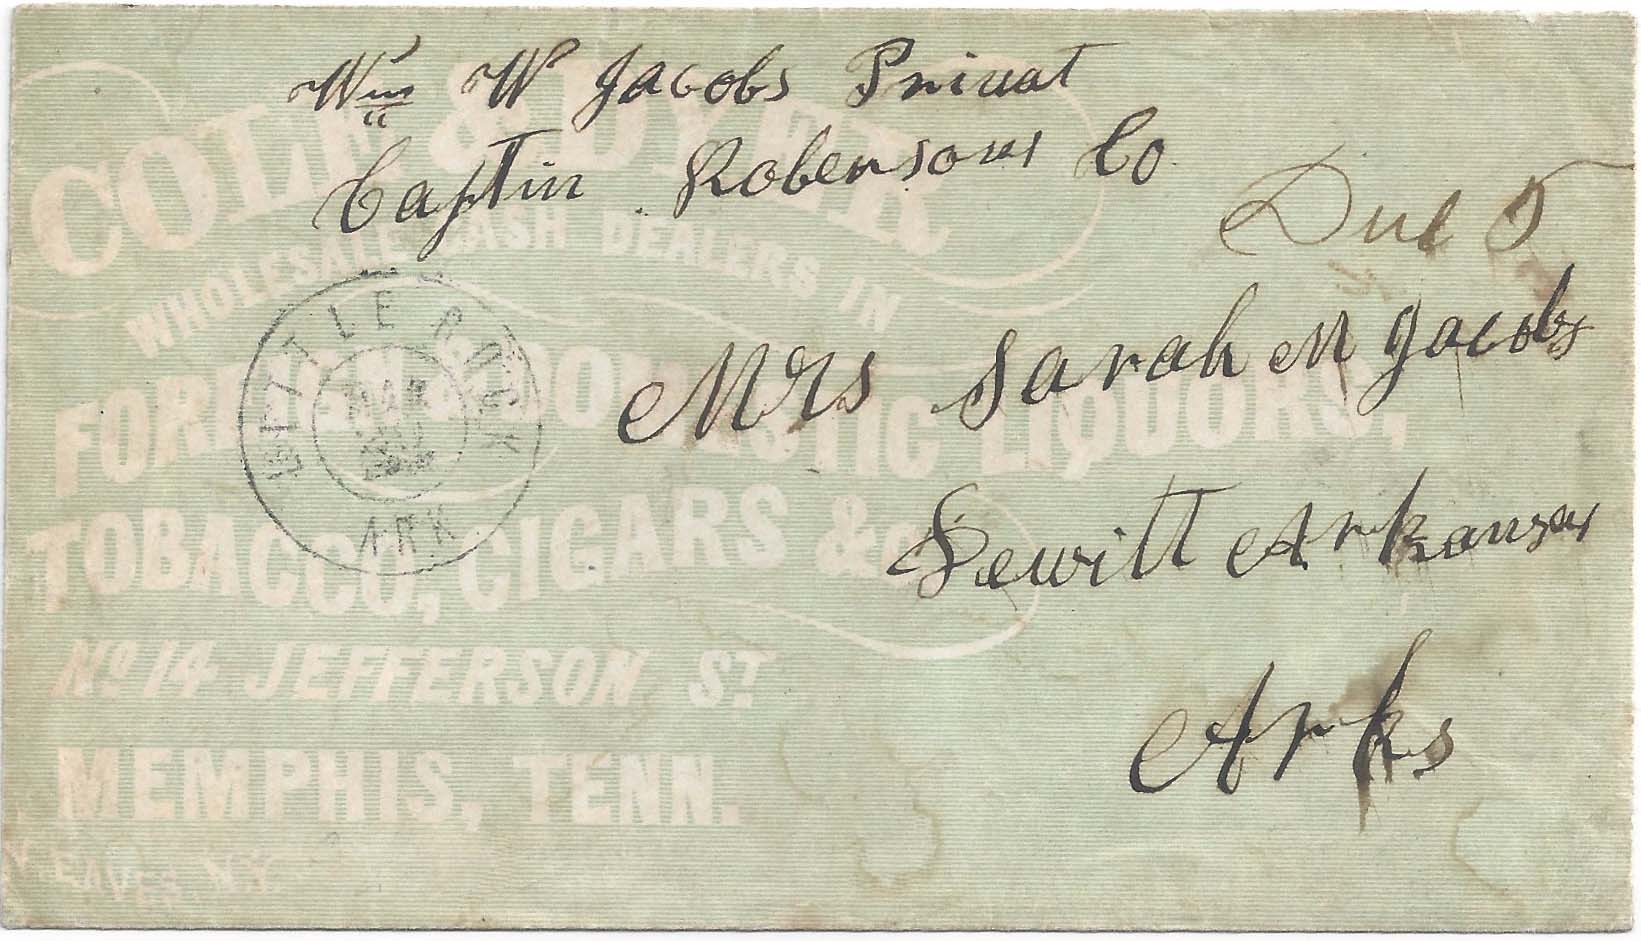 Wm W Jacobs Privat
Captin Robersons Co
Due 5
Mrs Sarah M Jacobs
Dewitt Arkansas
Arks
LITTLE ROCK
ARK
COLE & DYER
WHOLESALE CASH DEALERS IN
FOREIGN & DOMESTIC LIQUORS,
TOBACCO, CIGARS &C
No 14 JEFFERSON ST
MEMPHIS, TENN.
N.Y.